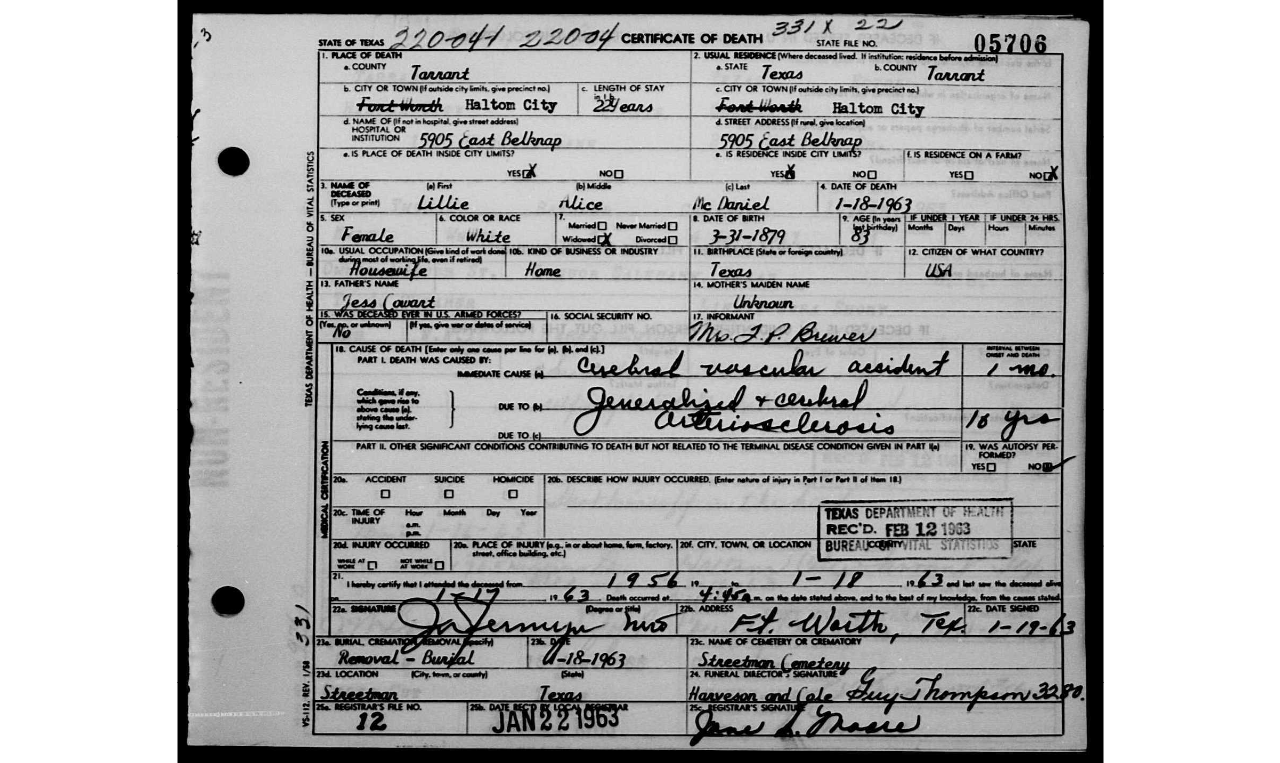 STATE OF TEXAS 220-041 22004 CERTIFICATE OF DEATH 331 X 22 STATE FILE NO. 05706
1. PLACE OF DEATH 2. USUAL RESIDENCE (Where deceased lived. If institution: residence before admission)
a. COUNTY Tarrant a. STATE Texas b. COUNTY Tarrant
b. CITY OR TOWN (If outside city limits, give precinct no.) c. LENGTH OF STAY in 1b c. CITY OR TOWN (If outside city limits, give precinct no.)
Fort Worth Haltom City 22Years Fort Worth Haltom City
d. NAME OF (If not in hospital, give street address) HOSPITAL OR INSTITUTION 5905 East Belknap d. STREET ADDRESS (If rural, give location) 5905 East Belknap
e. IS PLACE OF DEATH INSIDE CITY LIMITS? e. IS RESIDENCE INSIDE CITY LIMITS? f. IS RESIDENCE ON A FARM?
YES X NO YES X NO YES NO X
3. NAME OF DECEASED (Type or print) (a) First (b) Middle (c) Last 4. DATE OF DEATH
Lillie Alice Mc Daniel 1-18-1963
5. SEX 6. COLOR OR RACE 7. Married Never Married 8. DATE OF BIRTH 9. AGE (In years last birthday) IF UNDER 1 YEAR IF UNDER 24 HRS.
Female White Widowed X Divorced 3-31-1879 83 Months Days Hours Minutes
10a. USUAL OCCUPATION (Give kind of work done during most of working life, even if retired) 10b. KIND OF BUSINESS OR INDUSTRY 11. BIRTHPLACE (State or foreign country) 12. CITIZEN OF WHAT COUNTRY?
Housewife Home Texas USA
13. FATHER'S NAME 14. MOTHER'S MAIDEN NAME
Jess Cowart Unknown
15. WAS DECEASED EVER IN U.S. ARMED FORCES? 16. SOCIAL SECURITY NO. 17. INFORMANT
(Yes, no, or unknown) (If yes, give war or dates of service)
No Mrs. J. P. Brewer
18. CAUSE OF DEATH [Enter only one cause per line for (a), (b), and (c).] INTERVAL BETWEEN ONSET AND DEATH
PART I. DEATH WAS CAUSED BY:
IMMEDIATE CAUSE (a) Cerebral vascular accident 1 mo.
Conditions, if any, which gave rise to above cause (a), stating the underlying cause last.
DUE TO (b) Generalized + cerebral
arteriosclerosis 10 yrs
DUE TO (c)
PART II. OTHER SIGNIFICANT CONDITIONS CONTRIBUTING TO DEATH BUT NOT RELATED TO THE TERMINAL DISEASE CONDITION GIVEN IN PART I(a) 19. WAS AUTOPSY PERFORMED?
YES NO
20a. ACCIDENT SUICIDE HOMICIDE 20b. DESCRIBE HOW INJURY OCCURRED. (Enter nature of injury in Part I or Part II of Item 18.)
20c. TIME OF INJURY Hour Month Day Year
a.m.
p.m.
TEXAS DEPARTMENT OF HEALTH
REC'D. FEB 12 1963
BUREAU OF VITAL STATISTICS
20d. INJURY OCCURRED 20e. PLACE OF INJURY (e.g., in or about home, farm, factory, street, office building, etc.) 20f. CITY, TOWN, OR LOCATION COUNTY STATE
WHILE AT WORK NOT WHILE AT WORK
21. I hereby certify that I attended the deceased from 1956 19 to 1-18 1963 and last saw the deceased alive
on 1-17 1963 Death occurred at 4:45a m. on the date stated above, and to the best of my knowledge, from the causes stated.
22a. SIGNATURE (Degree or title) 22b. ADDRESS 22c. DATE SIGNED
MD Ft. Worth, Tex. 1-19-63
23a. BURIAL, CREMATION, REMOVAL (Specify) 23b. DATE 23c. NAME OF CEMETERY OR CREMATORY
Removal - Burial 1-18-1963 Streetman Cemetery
23d. LOCATION (City, town, or county) (State) 24. FUNERAL DIRECTOR'S SIGNATURE
Streetman Texas Harveson and Cole Guy Thompson 3280.
25a. REGISTRAR'S FILE NO. 25b. DATE REC'D BY LOCAL REGISTRAR 25c. REGISTRAR'S SIGNATURE
12 JAN 22 1963 Jane S. Moore
TEXAS DEPARTMENT OF HEALTH — BUREAU OF VITAL STATISTICS
MEDICAL CERTIFICATION
VS-112, REV. 1/58
331